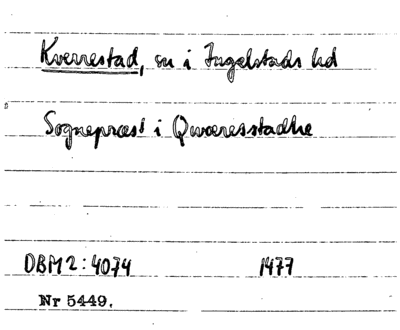 Kverrestad, sn i Ingelstads hd
Sognepræst i Qwæresstadhe
DBM 2:4074 1477
Nr 5449.